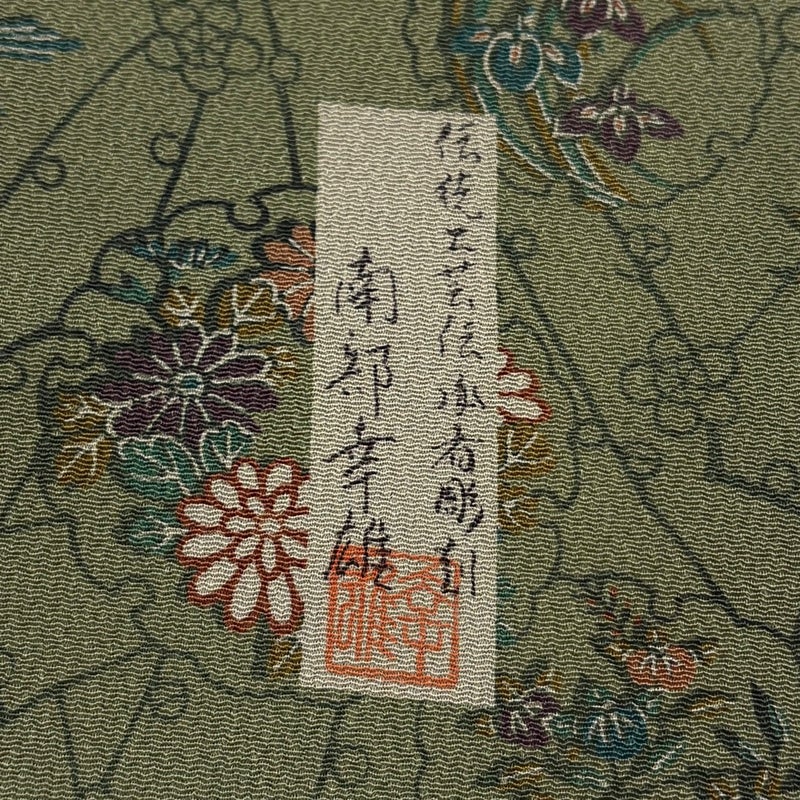 伝統工芸伝承者彫刻
南部幸雄